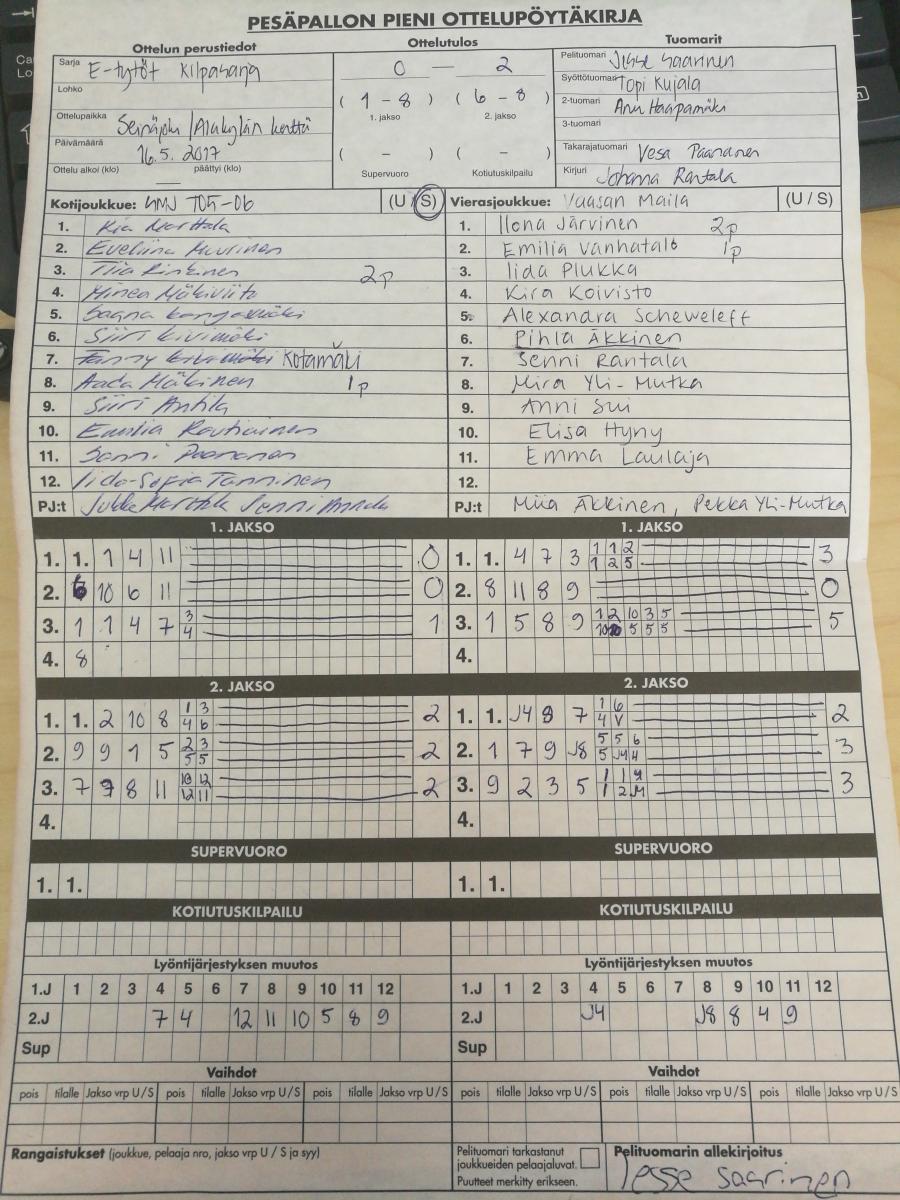 PESÄPALLON PIENI OTTELUPÖYTÄKIRJA
Ottelun perustiedot
Ottelutulos
Tuomarit
Sarja E-tytöt Kilpasarja
0 — 2
Pelituomari Jesse Saarinen
Lohko
Syöttötuomari Topi Kujala
( 1 - 8 ) ( 6 - 8 )
1. jakso 2. jakso
2-tuomari Anu Haapamäki
Ottelupaikka Seinäjoki / Alakylän kenttä
3-tuomari
Päivämäärä 16.5.2017
( - ) ( - )
Takarajatuomari Vesa Paananen
Ottelu alkoi (klo) — päättyi (klo)
Supervuoro Kotiutuskilpailu
Kirjuri Johanna Rantala
Kotijoukkue: SMJ T05-06 (U / S)
Vierasjoukkue: Vaasan Maila (U / S)
1. Kia Marttala
1. Ilona Järvinen 2p
2. Eveliina
2. Emilia Vanhatalo 1p
3. Tiia Rinkinen 2p
3. Iida Plukka
4. Minea Mäkiviita
4. Kira Koivisto
5. Saana
5. Alexandra Scheweleff
6. Siiri Kivimäki
6. Pihla Äkkinen
7. Fanny Kotamäki
7. Senni Rantala
8. Aada Mäkinen 1p
8. Mira Yli-Mutka
9. Siiri Antila
9. Anni Sui
10. Emilia Rautiainen
10. Elisa Hyny
11. Sanni Paananen
11. Emma Laulaja
12. Iida-Sofia Tanninen
12.
PJ:t Jukka Marttala Jenni
PJ:t Miia Äkkinen, Pekka Yli-Mutka
1. JAKSO
1. JAKSO
1. 1. 1 4 11 0
1. 1. 4 7 3 1 1 2 3
1 2 5
2. 10 6 11 0
2. 8 11 8 9 0
3. 1 1 4 7 3 1
4
3. 1 5 8 9 1 2 10 3 5 5
10 5 5 5
4. 8
4.
2. JAKSO
2. JAKSO
1. 1. 2 10 8 1 3 2
4 6
1. 1. J4 9 7 1 6 2
4 V
2. 9 9 1 5 2 3 2
5 5
2. 1 7 9 J8 5 5 6 3
5 J4 4
3. 7 9 8 11 10 12 2
12 11
3. 9 2 3 5 1 1 3
1 2
4.
4.
SUPERVUORO
SUPERVUORO
1. 1.
1. 1.
KOTIUTUSKILPAILU
KOTIUTUSKILPAILU
Lyöntijärjestyksen muutos
Lyöntijärjestyksen muutos
1.J 1 2 3 4 5 6 7 8 9 10 11 12
1.J 1 2 3 4 5 6 7 8 9 10 11 12
2.J 7 4 12 11 10 5 8 9
2.J J4 J8 8 4 9
Sup
Sup
Vaihdot
Vaihdot
pois tilalle Jakso vrp U/S pois tilalle Jakso vrp U/S pois tilalle Jakso vrp U/S
pois tilalle Jakso vrp U/S pois tilalle Jakso vrp U/S pois tilalle Jakso vrp U/S
Rangaistukset (joukkue, pelaaja nro, jakso vrp U / S ja syy)
Pelituomari tarkastanut
joukkueiden pelaajaluvat.
Puutteet merkitty erikseen.
Pelituomarin allekirjoitus
Jesse Saarinen